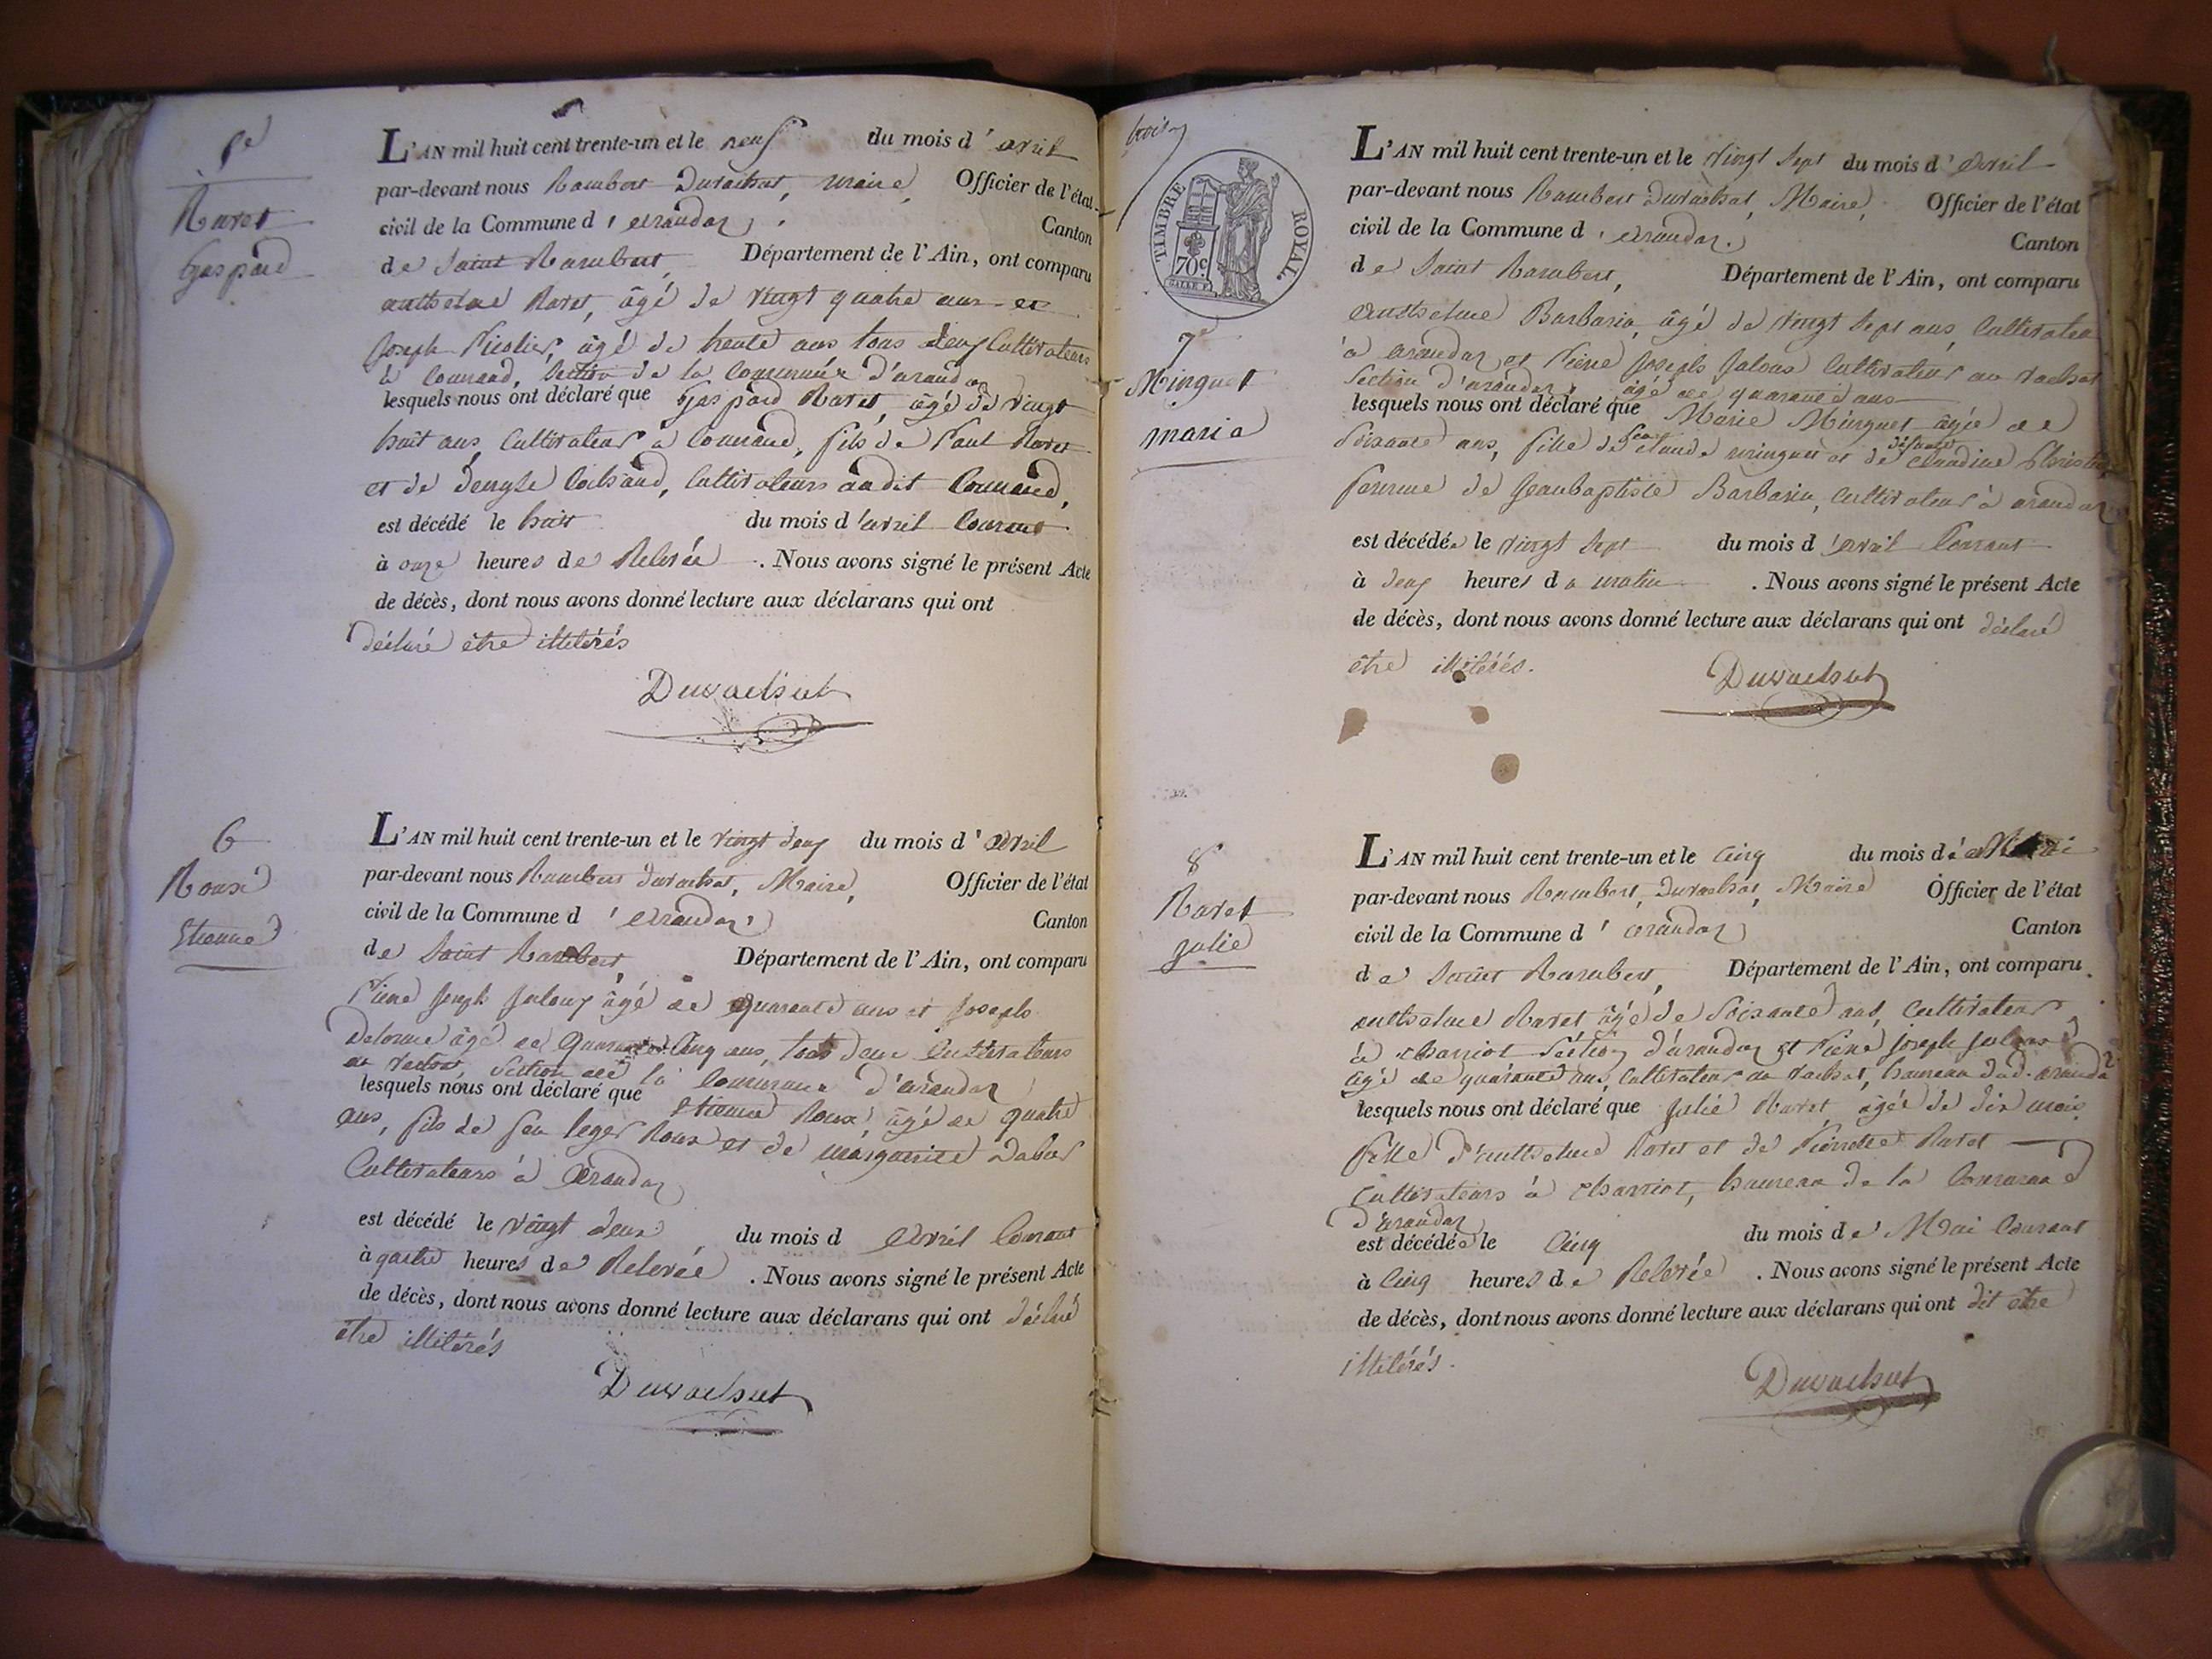 5e
Ravet
Gaspard
L'AN mil huit cent trente-un et le neuf du mois d'avril
par-devant nous Rambert Duvachat, maire, Officier de l'état
civil de la Commune d'arandaz, Canton
de Saint Rambert, Département de l'Ain, ont comparu
anthelme Ravet, âgé de vingt quatre ans et
Joseph âgé de trente ans tous deux Cultivateurs
à Counand, Section de la Commune d'arandaz
lesquels nous ont déclaré que Gaspard Ravet, âgé de vingt
huit ans, Cultivateur à Counand, fils de Paul Ravet
et de Cultivateurs audit Counand,
est décédé le huit du mois d'avril Courant
à onze heures de Relevée. Nous avons signé le présent Acte
de décès, dont nous avons donné lecture aux déclarans qui ont
déclaré être illiterés
Duvachat
6
Roux
Etienne
L'AN mil huit cent trente-un et le vingt deux du mois d'avril
par-devant nous Rambert Duvachat, Maire, Officier de l'état
civil de la Commune d'arandaz Canton
de Saint Rambert, Département de l'Ain, ont comparu
Pierre Joseph âgé de quarante ans et Joseph
Delorme âgé de Quarante Cinq ans, tous deux Cultivateurs
au vachat, Section de la Commune d'arandaz
lesquels nous ont déclaré que Etienne Roux, âgé de quatre
ans, fils de feu leger Roux et de marguerite
Cultivateurs à Arandaz
est décédé le vingt deux du mois d avril Courant
à quatre heures de Relevée. Nous avons signé le présent Acte
de décès, dont nous avons donné lecture aux déclarans qui ont déclaré
être illiterés
Duvachat
trois
TIMBRE ROYAL
70c
7e
Minguet
marie
L'AN mil huit cent trente-un et le vingt Sept du mois d'avril
par-devant nous Rambert Duvachat, Maire, Officier de l'état
civil de la Commune d'arandaz. Canton
de Saint Rambert, Département de l'Ain, ont comparu
anthelme Barbarin, âgé de vingt Sept ans, Cultivateur
à arandaz, et Pierre Joseph Cultivateur au vachat
Section d'arandaz, âgé de quarante ans
lesquels nous ont déclaré que Marie Minguet âgée de
Soixante ans, fille de feu claude minguet et de défunte claudine
femme de Jeanbaptiste Barbarin, Cultivateur à arandaz
est décédée le vingt Sept du mois d'avril Courant
à deux heures du matin. Nous avons signé le présent Acte
de décès, dont nous avons donné lecture aux déclarans qui ont déclaré
être illiterés.
Duvachat
8
Ravet
julie
L'AN mil huit cent trente-un et le Cinq du mois de Mai
par-devant nous Rambert, Duvachat, Maire Officier de l'état
civil de la Commune d'arandaz Canton
de Saint Rambert, Département de l'Ain, ont comparu
anthelme Ravet âgé de Soixante ans, Cultivateur
à charriot Section d'arandaz et Pierre joseph
âgé de quarante ans, Cultivateur au vachat, hameau dud. arandaz
lesquels nous ont déclaré que julie Ravet âgée de dix mois
fille d'anthelme Ravet et de Pierrette Ravet
Cultivateurs à charriot, hameau de la Commune
d'arandaz
est décédée le Cinq du mois de Mai Courant
à Cinq heures de Relevée. Nous avons signé le présent Acte
de décès, dont nous avons donné lecture aux déclarans qui ont dit être
illiterés.
Duvachat